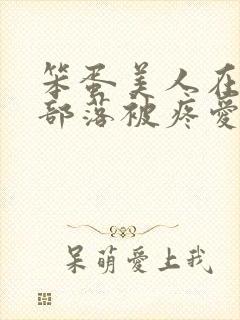 笨蛋美人在
部落被疼爱
呆萌愛上我